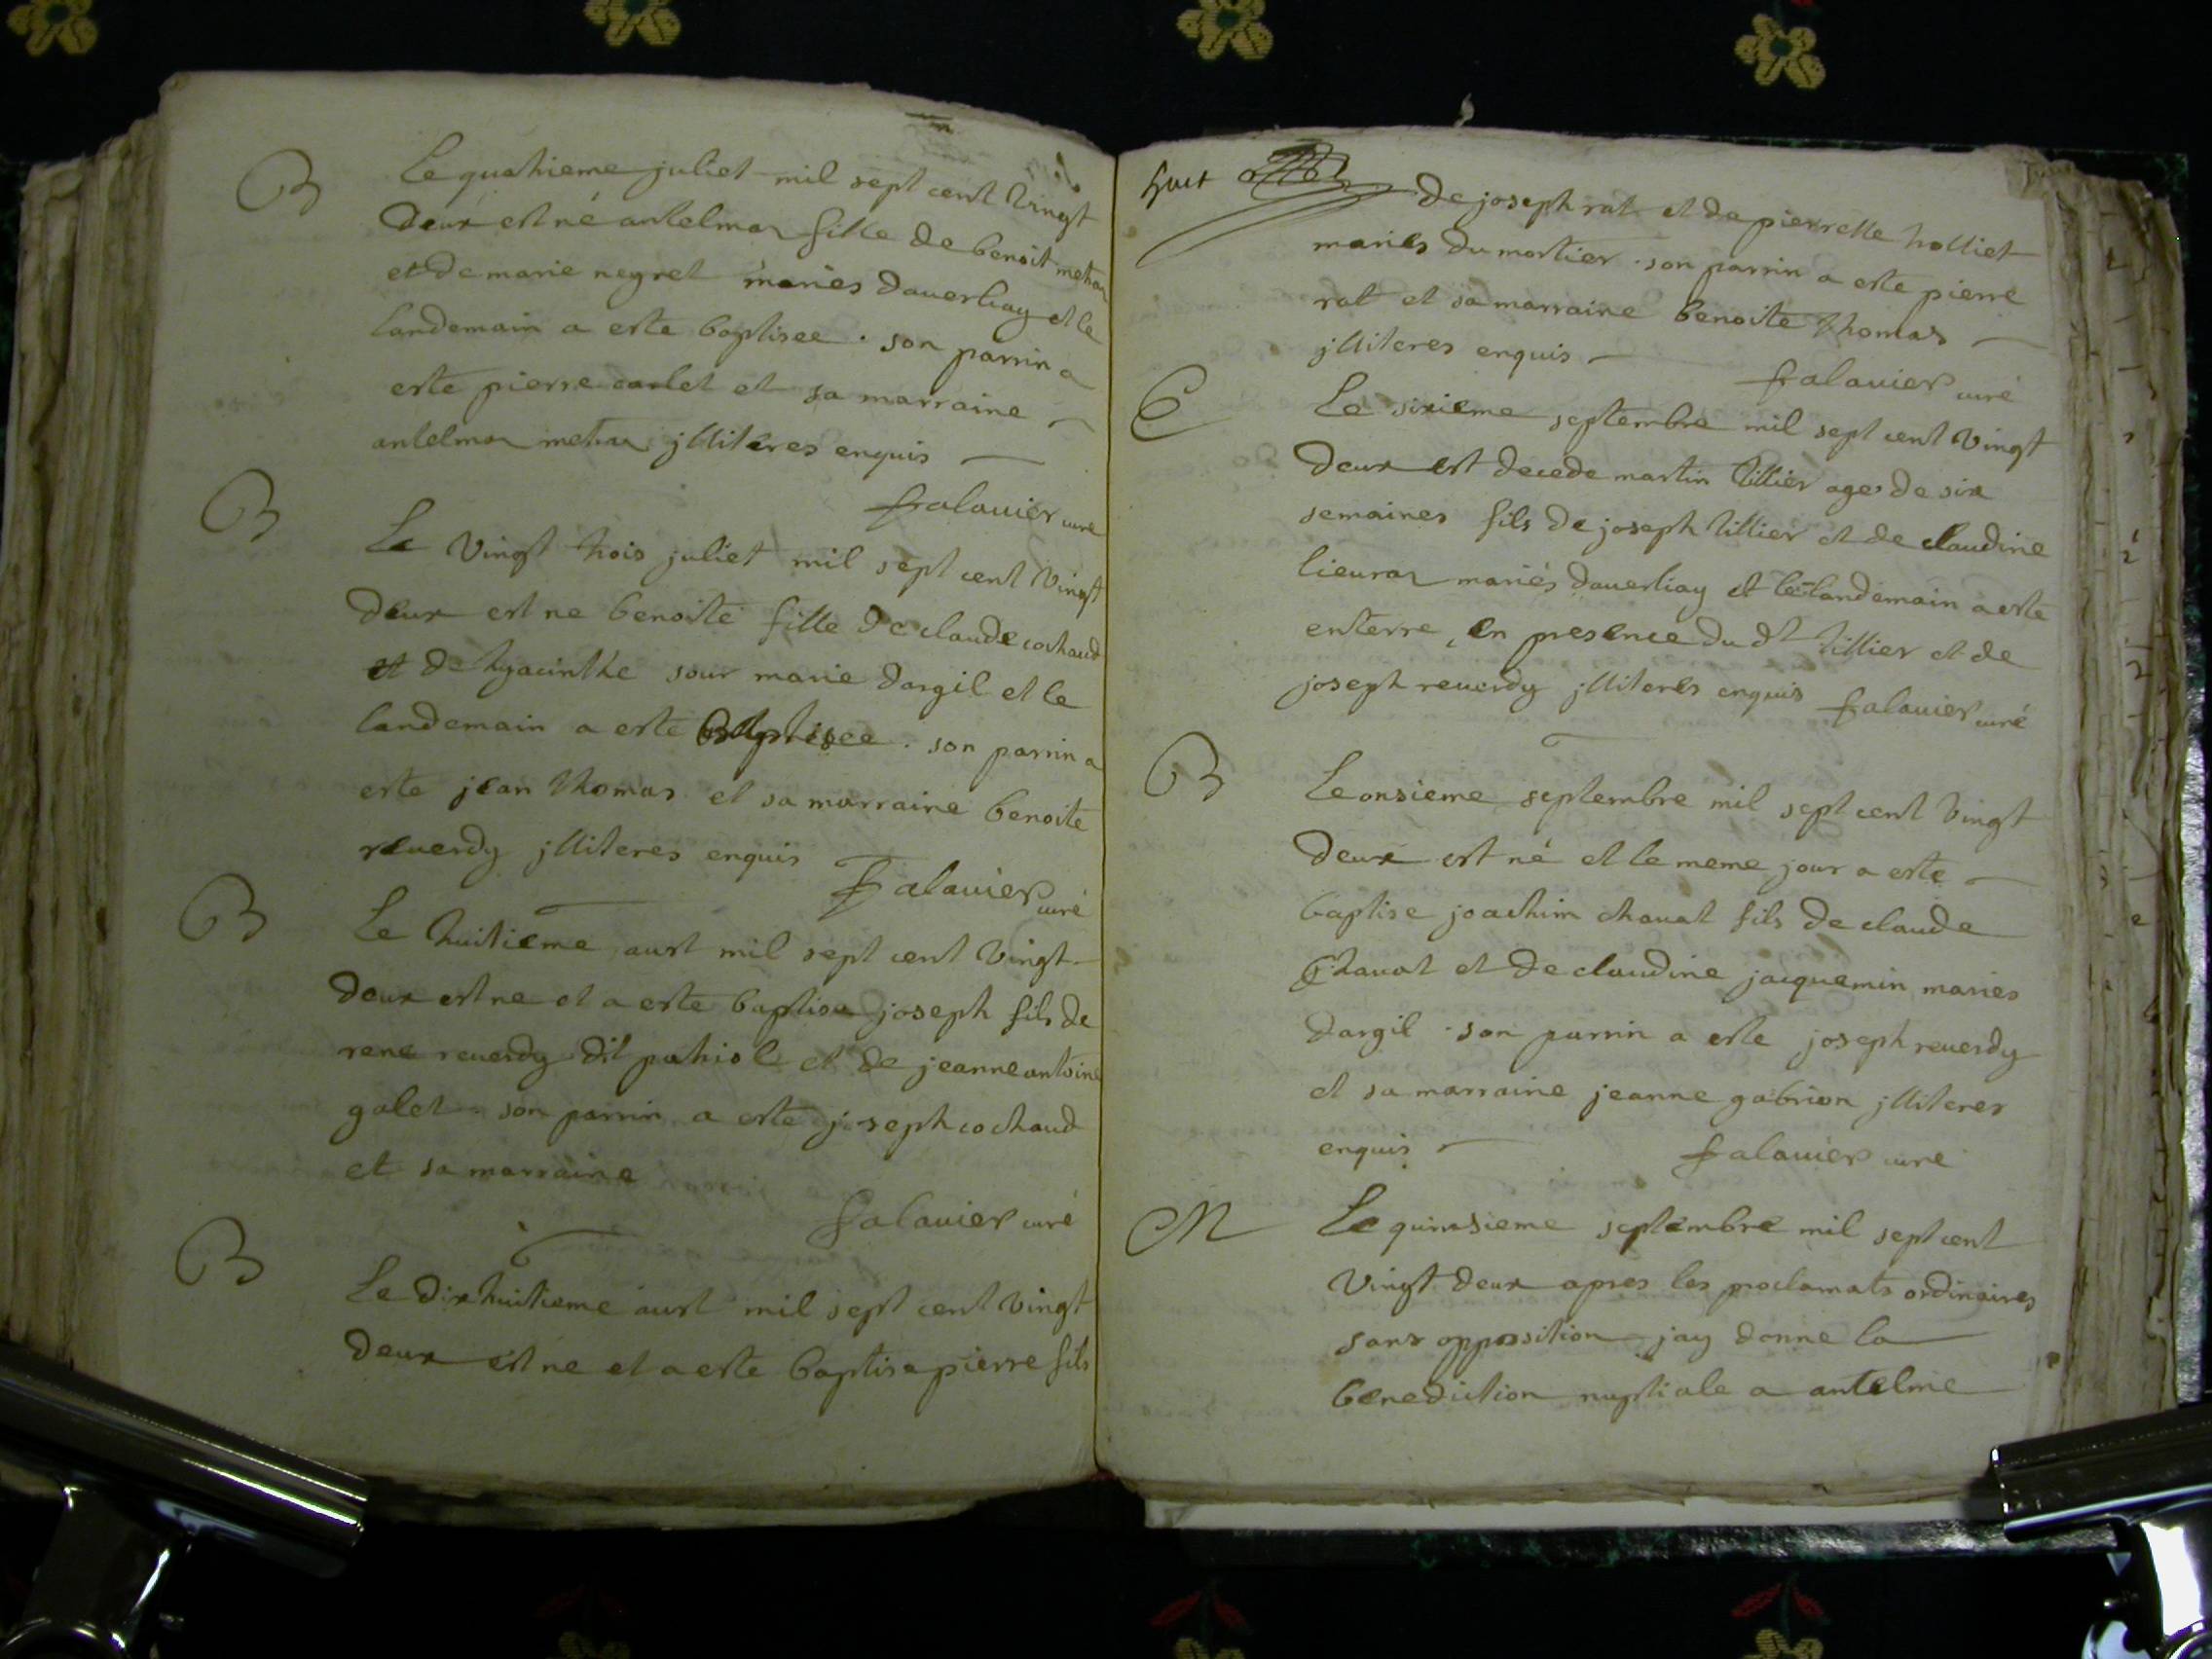 B
Le quatrieme juliet mil sept cent vingt
deux est né antelmaz fille de benoit metraz
et de marie negret mariés daverliay et le
landemain a este baptisee . son parrin a
este pierre carlet et sa marraine
antelmaz metraz jlliteres enquis
falavier curé
B
Le vingt trois juliet mil sept cent vingt
deux est ne benoite fille de claude cochaud
et de hyacinthe sour marie dargil et le
landemain a este baptisee . son parrin a
este jean thomas et sa marraine benoite
reverdy jlliteres enquis
falavier curé
B
Le huitieme aust mil sept cent vingt
deux est ne et a este baptise joseph fils de
rene reverdy dit patriol et de jeanne antoine
galet son parrin a este joseph cochaud
et sa marraine
falavier curé
B
Le dix huitieme aust mil sept cent vingt
deux est ne et a este baptise pierre fils
huit
de joseph rat et de pierrette tolliet
mariés du mortier . son parrin a este pierre
rat et sa marraine benoite thomas
jlliteres enquis
falavier curé
E
Le sixieme septembre mil sept cent vingt
deux est decede martin tillier ages de six
semaines fils de joseph tillier et de claudine
lieuraz mariés daverliay et le landemain a este
enterre, en presence du dt tillier et de
joseph reverdy jlliteres enquis falavier curé
B
Le onsieme septembre mil sept cent vingt
deux est né et le meme jour a este
baptise joachim chavat fils de claude
Chavat et de claudine jacquemin mariés
dargil . son parrin a este joseph reverdy
et sa marraine jeanne gabrion jlliteres
enquis
falavier curé
M
Le quinsieme septembre mil sept cent
vingt deux apres les proclamats ordinaires
sans opposition jay donne la
benediction nuptiale a antelme